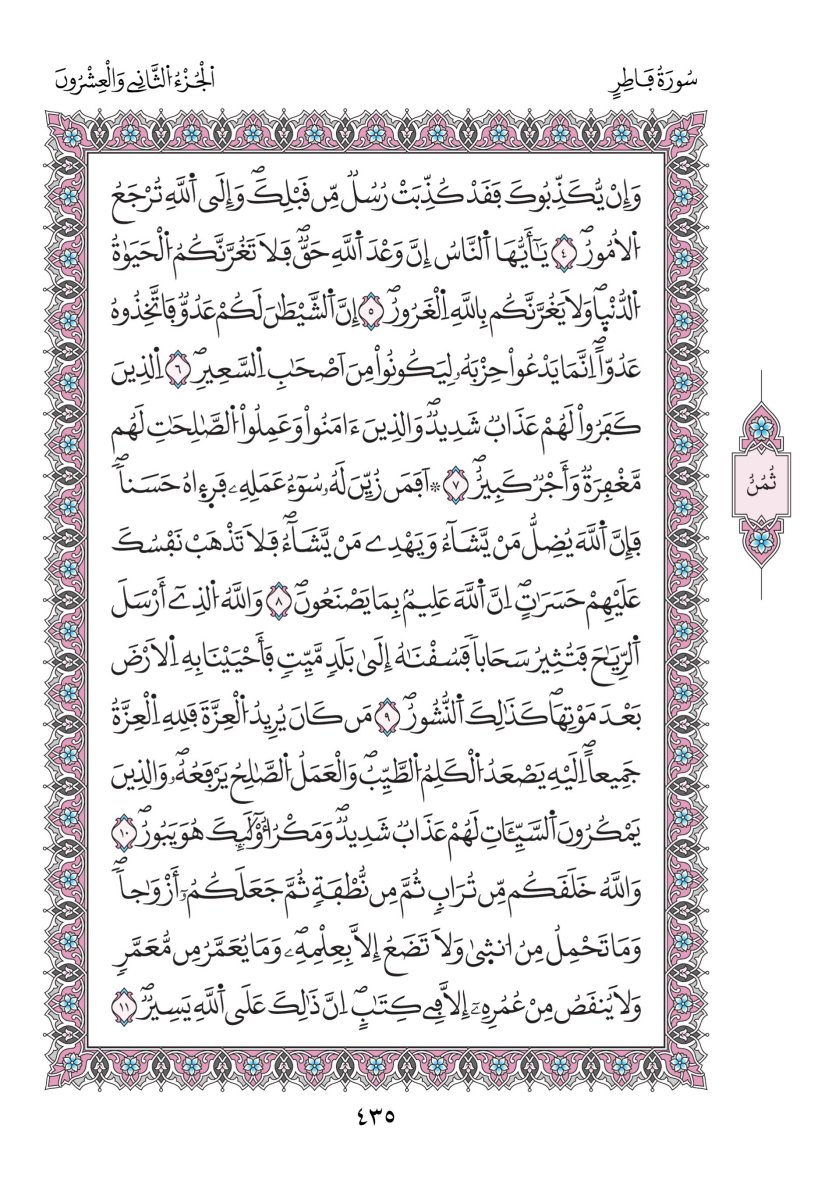 سُورَةُ فَاطِرٍ
اَلْجُزْءُ الثَّانِي وَالْعِشْرُونَ
وَإِنْ يُّكَذِّبُوكَ فَقَدْ كُذِّبَتْ رُسُلٞ مِّن قَبْلِكَۖ وَإِلَي اَ۬للَّهِ تُرْجَعُ
اُ۬لُامُورُۖ ٤ يَٰٓأَيُّهَا اَ۬لنَّاسُ إِنَّ وَعْدَ اَ۬للَّهِ حَقّٞۖ فَلَا تَغُرَّنَّكُمُ اُ۬لْحَيَوٰةُ
اُ۬لدُّنْي۪اۖ وَلَا يَغُرَّنَّكُم بِاللَّهِ اِ۬لْغَرُورُۖ ٥ إِنَّ اَ۬لشَّيْطَٰنَ لَكُمْ عَدُوّٞ فَاتَّخِذُوهُ
عَدُوّاًۖ اِنَّمَا يَدْعُواْ حِزْبَهُۥ لِيَكُونُواْ مِنَ اَصْحَٰبِ اِ۬لسَّعِيرِۖ ٦ اِ۬لذِينَ
كَفَرُواْ لَهُمْ عَذَابٞ شَدِيدٞۖ وَالذِينَ ءَامَنُواْ وَعَمِلُواْ اُ۬لصَّٰلِحَٰتِ لَهُم
مَّغْفِرَةٞ وَأَجْرٞ كَبِيرٌۖ ٧ ۞ اَفَمَن زُيِّنَ لَهُۥ سُوٓءُ عَمَلِهِۦ فَرِء۪اهُ حَسَناٗۖ
فَإِنَّ اَ۬للَّهَ يُضِلُّ مَنْ يَّشَآءُ وَيَهْدِے مَنْ يَّشَآءُۖ فَلَا تَذْهَبْ نَفْسُكَ
عَلَيْهِمْ حَسَرَٰتٍۖ اِنَّ اَ۬للَّهَ عَلِيمُۢ بِمَا يَصْنَعُونَۖ ٨ وَاللَّهُ اُ۬لذِےٓ أَرْسَلَ
اَ۬لرِّيَٰحَ فَتُثِيرُ سَحَاباٗ فَسُقْنَٰهُ إِلَيٰ بَلَدٖ مَّيِّتٖ فَأَحْيَيْنَا بِهِ اِ۬لَارْضَ
بَعْدَ مَوْتِهَاۖ كَذَٰلِكَ اَ۬لنُّشُورُۖ ٩ مَن كَانَ يُرِيدُ اُ۬لْعِزَّةَ فَلِلهِ اِ۬لْعِزَّةُ
جَمِيعاًۖ اِلَيْهِ يَصْعَدُ اُ۬لْكَلِمُ اُ۬لطَّيِّبُۖ وَالْعَمَلُ اُ۬لصَّٰلِحُ يَرْفَعُهُۥۖ وَالذِينَ
يَمْكُرُونَ اَ۬لسَّيِّـَٔاتِ لَهُمْ عَذَابٞ شَدِيدٞۖ وَمَكْرُ أُوْلَٰٓئِكَ هُوَ يَبُورُۖ ١٠
وَاللَّهُ خَلَقَكُم مِّن تُرَابٖ ثُمَّ مِن نُّطْفَةٖ ثُمَّ جَعَلَكُمُۥٓ أَزْوَٰجاٗۖ
وَمَا تَحْمِلُ مِنُ ا۟نث۪يٰ وَلَا تَضَعُ إِلَّا بِعِلْمِهِۦۖ وَمَا يُعَمَّرُ مِن مُّعَمَّرٖ
وَلَا يُنقَصُ مِنْ عُمُرِهِۦٓ إِلَّا فِے كِتَٰبٍۖ اِنَّ ذَٰلِكَ عَلَي اَ۬للَّهِ يَسِيرٞۖ ١١
ثُمُنُ
٤٣٥